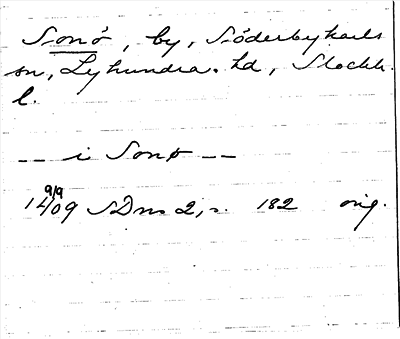 Sonö, by, Söderbykarls
sn, Lyhundra hd, Stockh.
l.
-- i Sono --
9/9
1409 SDns 2, s. 182 orig.